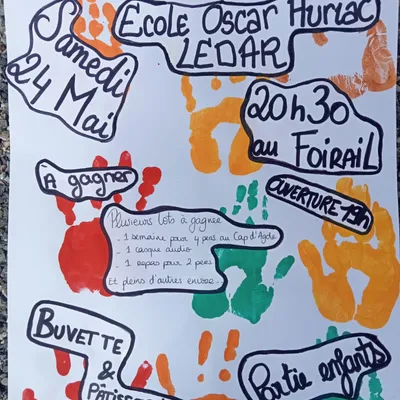 Samedi
24 Mai
Ecole Oscar Auriac
LEDAR
20h30
au FOIRAIL
A gagner
OUVERTURE 19h
Plusieurs lots à gagner
- 1 semaine pour 4 pers au Cap d'Agde
- 1 casque audio
- 1 repas pour 2 pers
Et pleins d'autres encore...
BUVETTE
&
Partie enfants